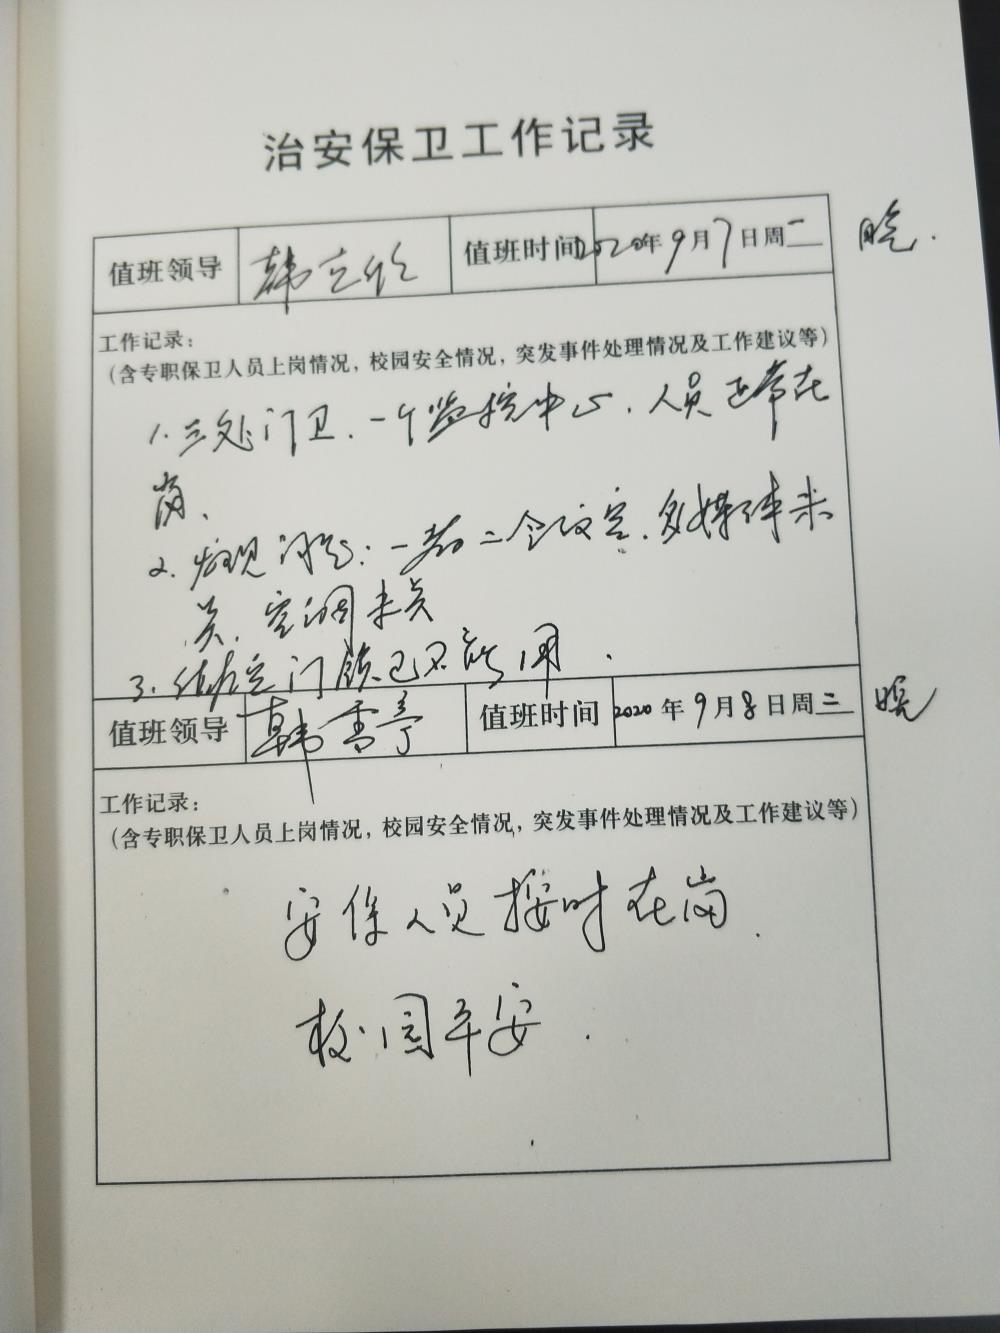 治安保卫工作记录
值班领导 韩立 值班时间 2020年9月7日周二 晚.
工作记录:
(含专职保卫人员上岗情况，校园安全情况，突发事件处理情况及工作建议等)
1.三处门卫.一个监控中心.人员正常在
岗.
2.发现问题:一教二会议室.多媒体未
关.空调未关
3.值班室门锁已不能用.
值班领导 韩雪亭 值班时间 2020年9月8日周三 晚
工作记录:
(含专职保卫人员上岗情况，校园安全情况，突发事件处理情况及工作建议等)
安保人员按时在岗.
校园平安.